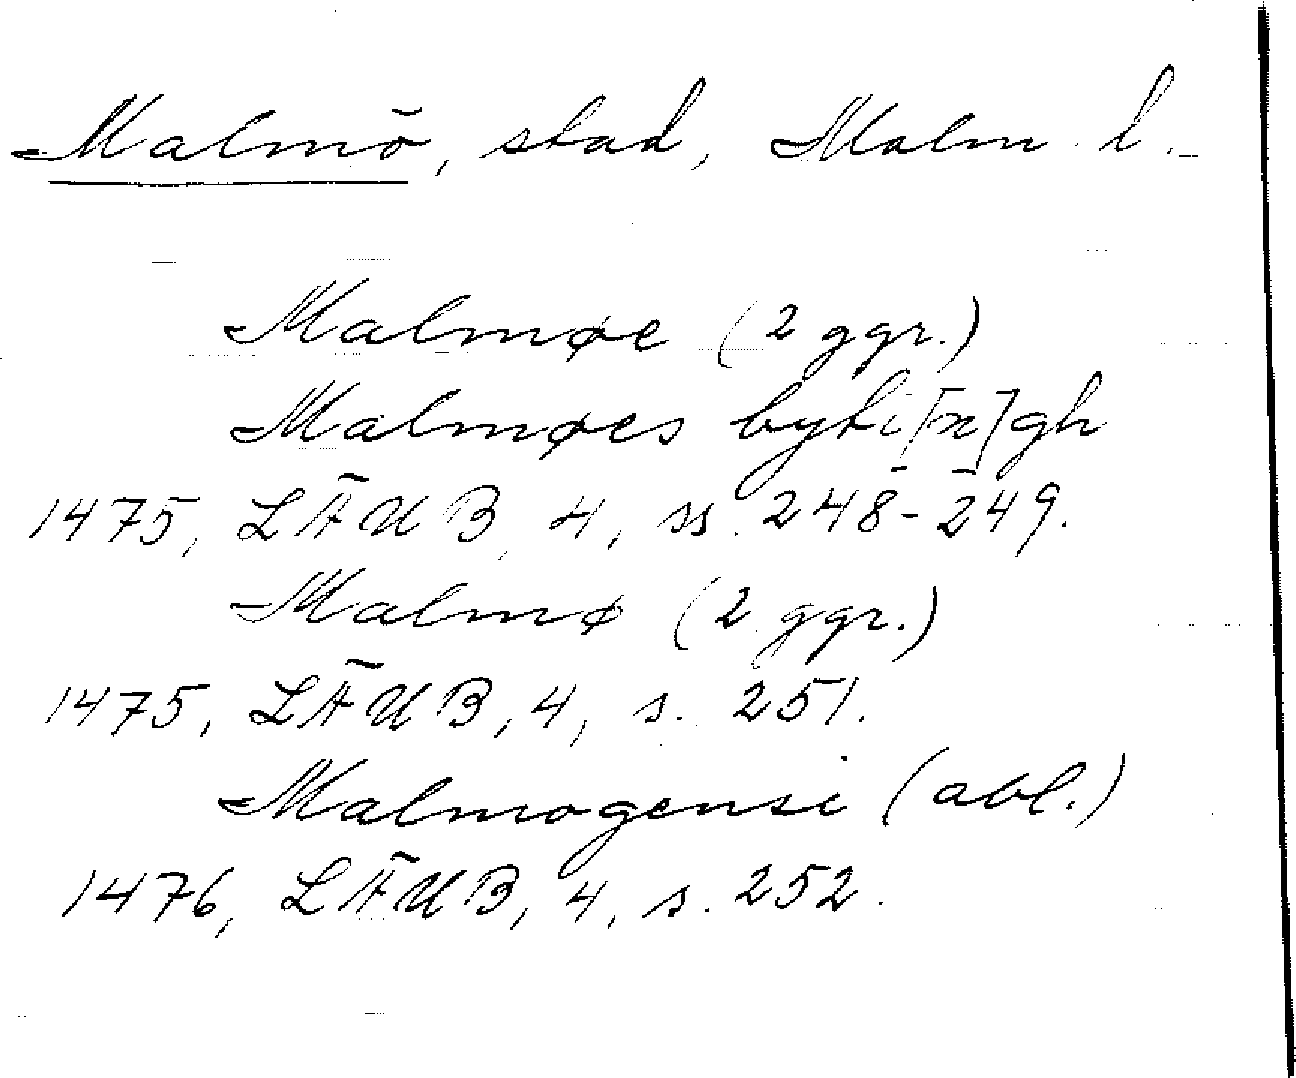 Malmö, stad, Malm. l.
Malmøe (2 ggr.)
Malmøes byti[n]gh
1475, LÄUB, 4, ss. 248-249.
Malmø (2 ggr.)
1475, LÄUB, 4, s. 251.
Malmogensi (abl.)
1476, LÄUB, 4, s. 252.